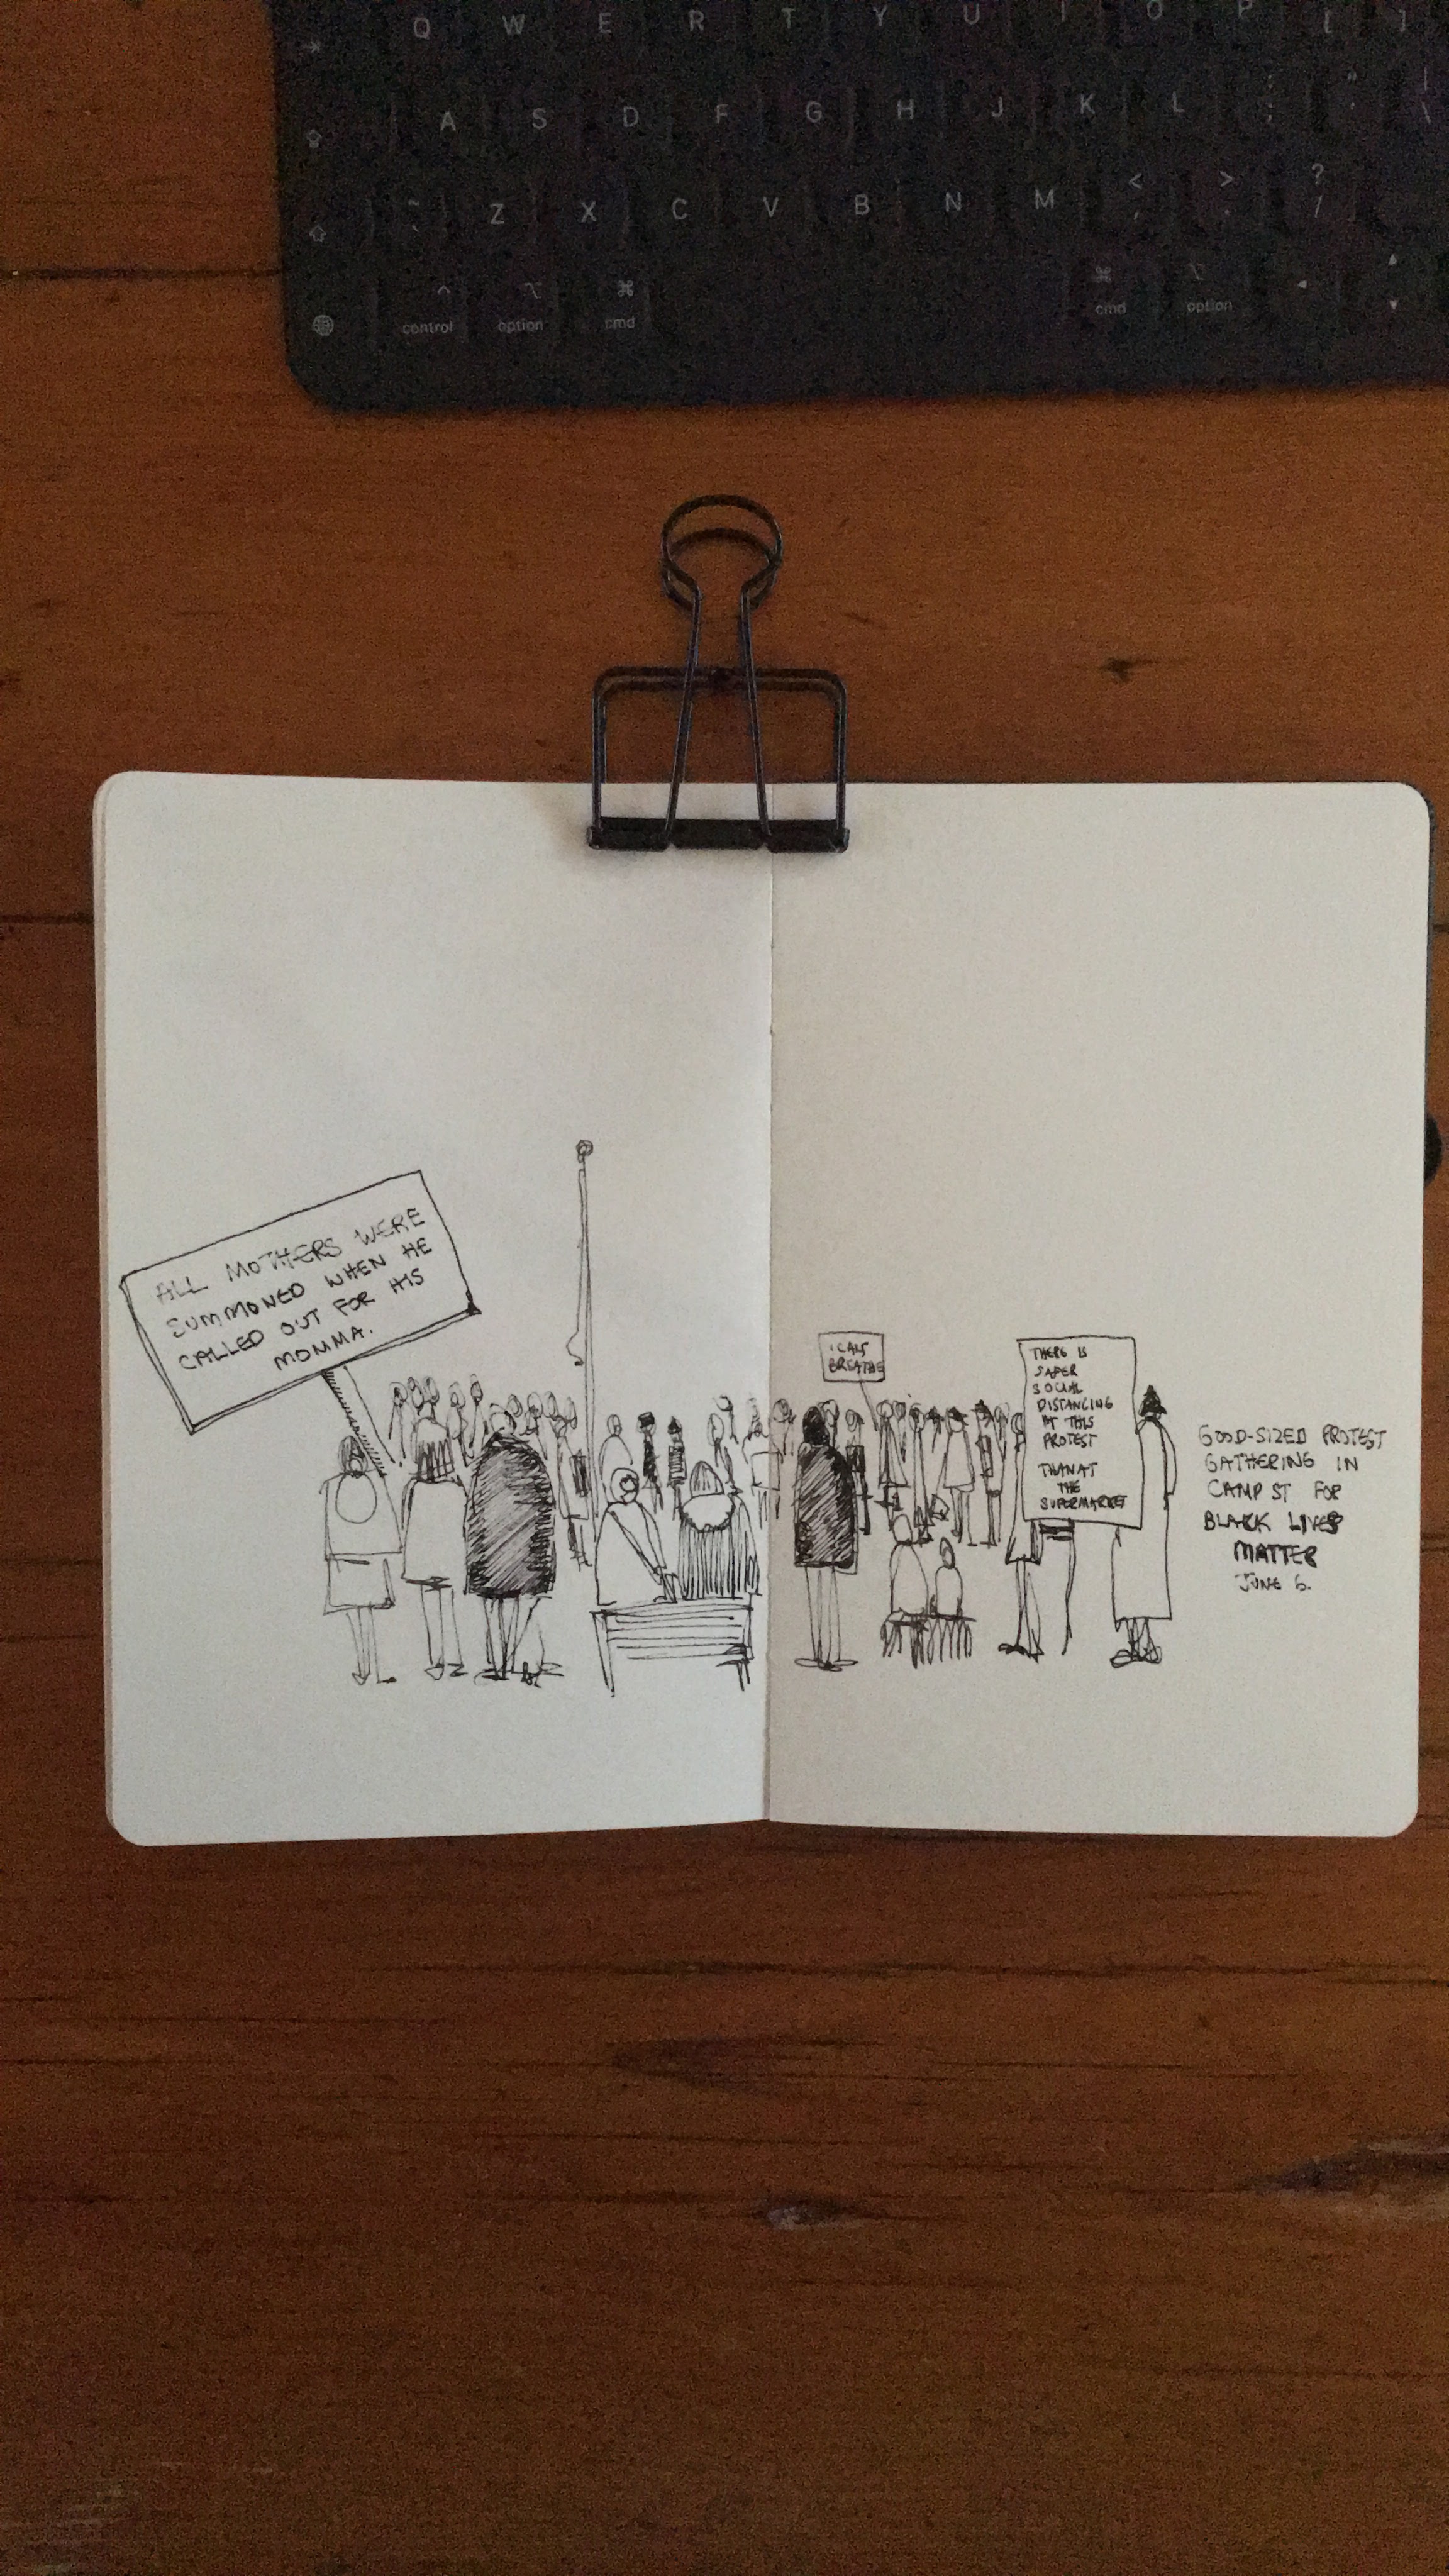 Q W E R T Y U I O P [ ]
A S D F G H J K L ; " '
| \
~ ` Z X C V B N M < , > . ? /
control option cmd cmd option
ALL MOTHERS WERE
SUMMONED WHEN HE
CALLED OUT FOR HIS
MOMMA.
I CAN'T
BREATHE
THERE IS
SAFER
SOCIAL
DISTANCING
AT THIS
PROTEST
THAN AT
THE
SUPERMARKET
GOOD-SIZED PROTEST
GATHERING IN
CAMP ST FOR
BLACK LIVES
MATTER
JUNE 6.